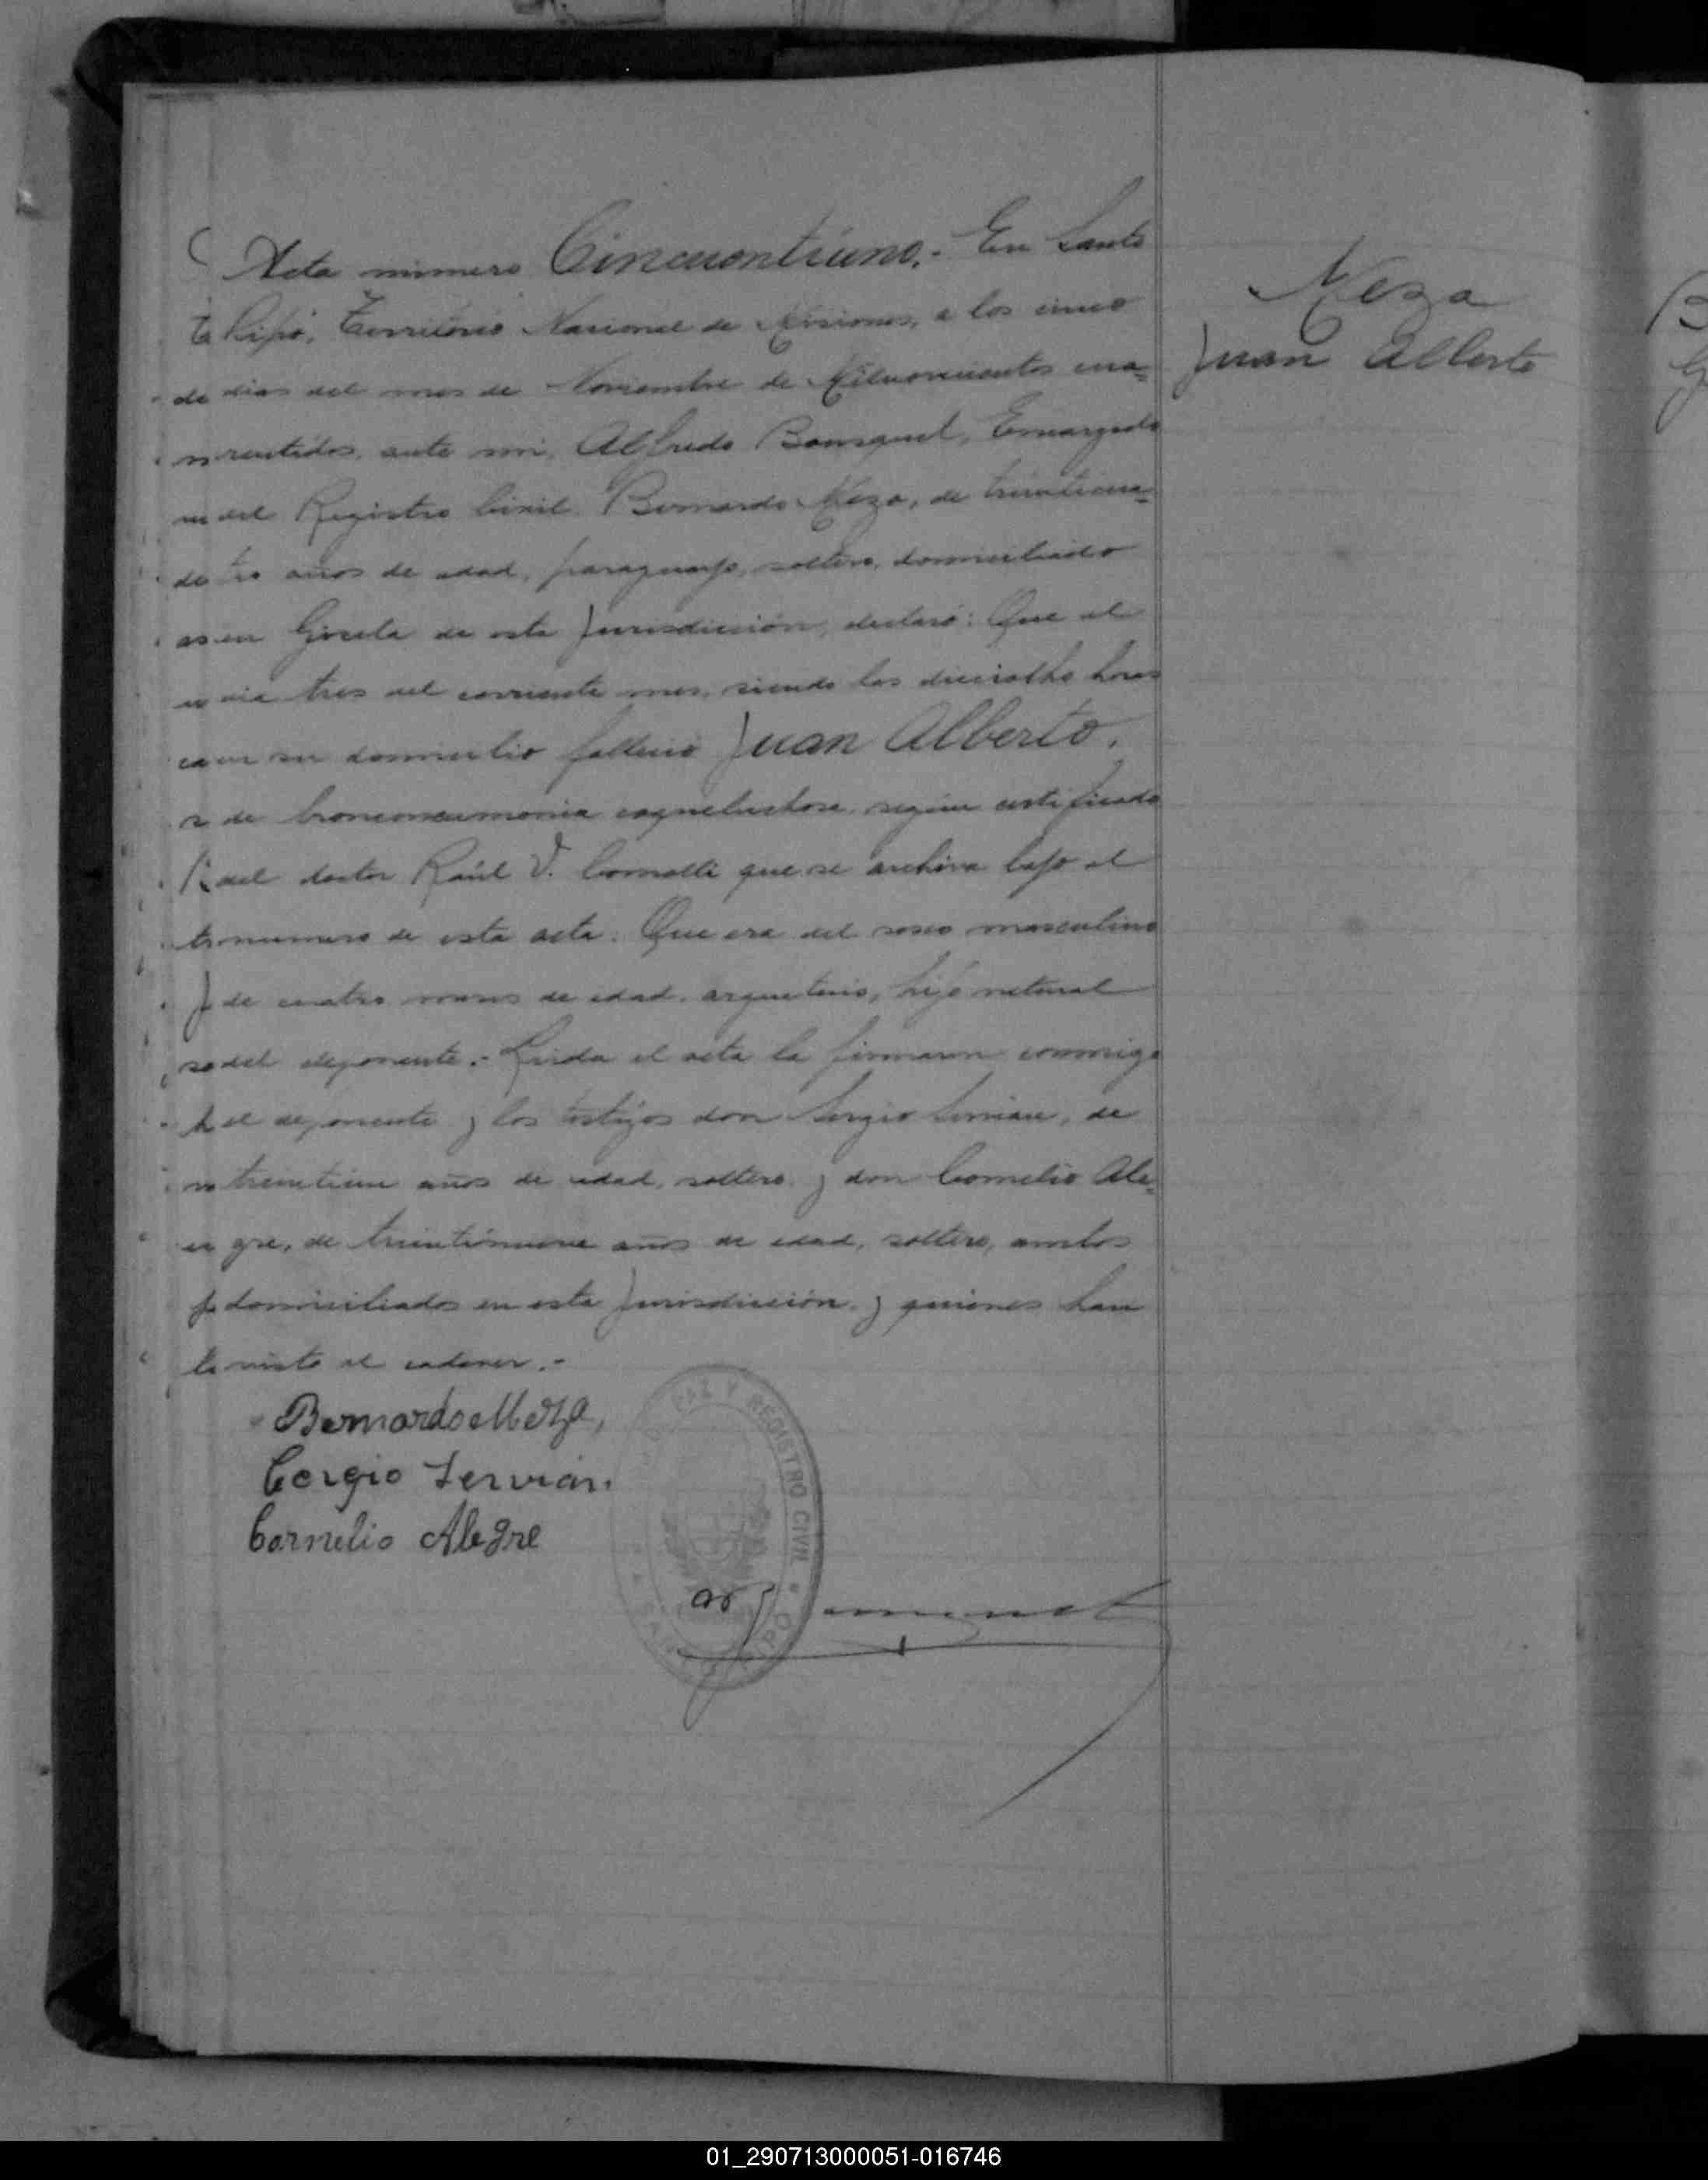 Acta número Cincuentiuno.- En Santo
Pipó, Territorio Nacional de Misiones, a los cinco
dias del mes de Noviembre de Milnovecientos cua=
rentidos, ante mi, Alfredo Bousquet, Encargado
del Registro Civil. Bernardo Meza, de treinticua=
tro años de edad, paraguayo, soltero, domiciliado
en Gisela de esta Jurisdicción, declaró: Que el
dia tres del corriente mes, siendo las dieciocho horas
en su domicilio falleció Juan Alberto,
de bronconeumonia coqueluchosa, según certificado
del doctor Raúl V. que se archiva bajo el
numero de esta acta. Que era del sexo masculino
de cuatro meses de edad, argentino, hijo natural
del deponente.- Leida el acta la firmaron conmigo
el deponente y los testigos don Sergio Servian, de
treintiun años de edad, soltero y don Cornelio Ale=
gre, de treintinueve años de edad, soltero, ambos
domiciliados en esta Jurisdicción y quienes han
visto el cadaver.-
Bernardo Meza,
Cergio Servian.
Cornelio Alegre
PAZ Y REGISTRO CIVIL
Meza
Juan Alberto
01_290713000051-016746